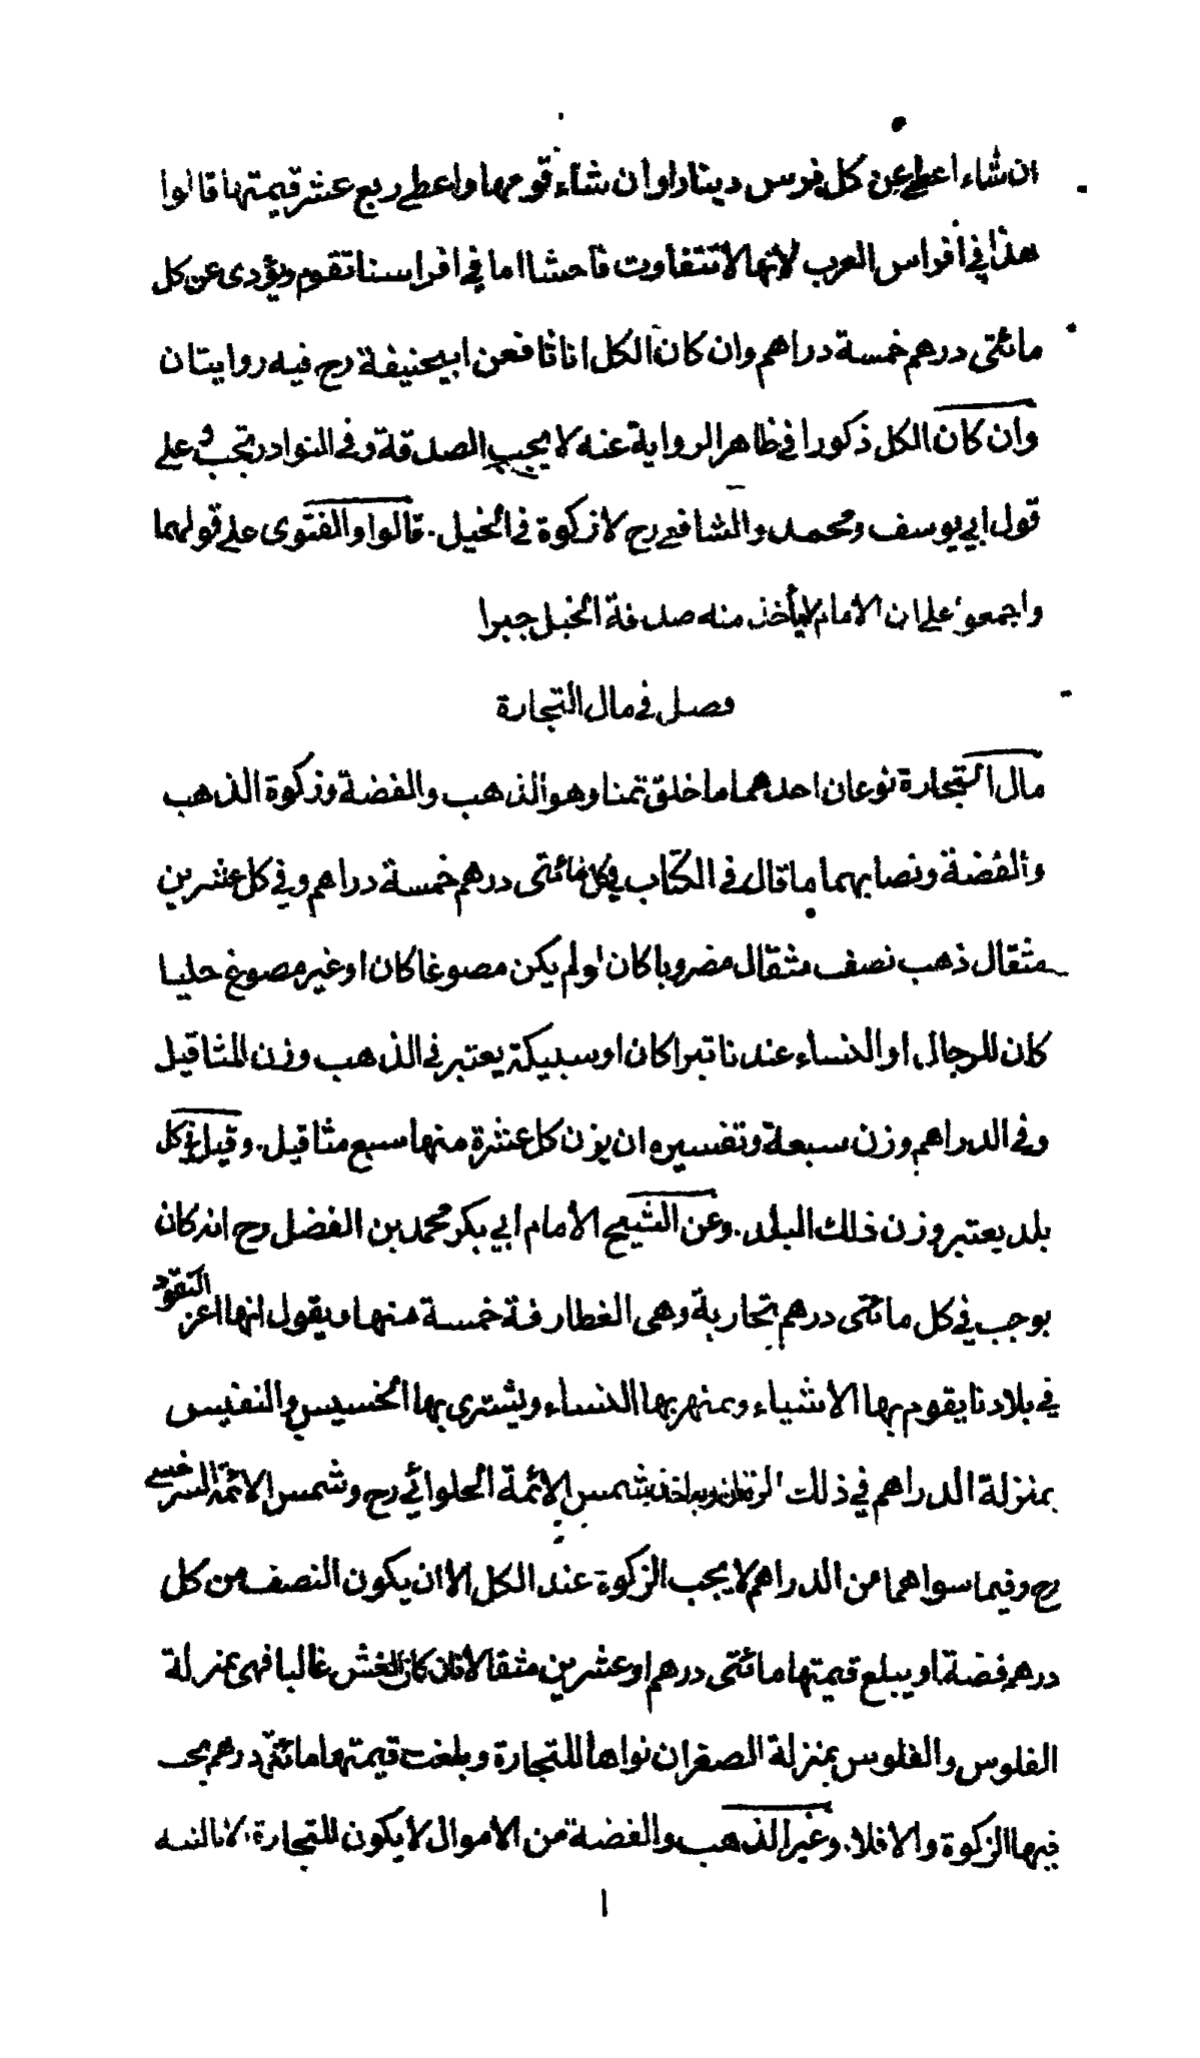 ان شاء اعطى عن كل فرس دينارا وان شاء قومها واعطى ربع عشر قيمتها قالوا
هذا في افراس العرب لانها لا تتفاوت فاحشا اما في افراسنا تقوم ويؤدى عن كل
مائتى درهم خمسة دراهم وان كان الكل اناثا فعن ابيحنيفة رح فيه روايتان
وان كان الكل ذكورا في ظاهر الرواية عنه لا يجب الصدقة وفى النوادر تجب وعلى
قول ابي يوسف ومحمد والشافعى رح لا زكوة فى الخيل. قالوا والفتوى على قولهما
واجمعوا على ان الامام لا يأخذ منه صدقة الخيل جبرا
فصل في مال التجارة
مال التجارة نوعان احدهما ما خلق ثمنا وهو الذهب والفضة وزكوة الذهب
والفضة ونصابهما ما قال فى الكتاب في كل مائتى درهم خمسة دراهم وفي كل عشرين
مثقال ذهب نصف مثقال مضروبا كان او لم يكن مصوغا كان او غير مصوغ حليا
كان للرجال او النساء عندنا تبرا كان او سبيكة يعتبر فى الذهب وزن المثاقيل
وفى الدراهم وزن سبعة وتفسيره ان يزن كل عشرة منها سبع مثاقيل. وقيل في كل
بلد يعتبر وزن ذلك البلد. وعن الشيخ الامام ابي بكر محمد بن الفضل رح انه كان
يوجب في كل مائتى درهم بخارية وهى الغطارفة خمسة منها ويقول انها اعز النقود
في بلادنا يقوم بها الاشياء ويمهر بها النساء ويشترى بها الخسيس والنفيس
بمنزلة الدراهم في ذلك الزمان وبه اخذ شمس الائمة الحلوائي رح وشمس الائمة السرخسى
رح وفيما سواهما من الدراهم لا يجب الزكوة عند الكل الا ان يكون النصف من كل
درهم فضة او يبلغ قيمتها مائتى درهم او عشرين مثقالا فان كان الغش غالبا فهى بمنزلة
الفلوس والفلوس بمنزلة الصفر ان نواها للتجارة وبلغت قيمتها مائتى درهم يجب
فيها الزكوة والا فلا. وغير الذهب والفضة من الاموال لا يكون للتجارة الا بالنية